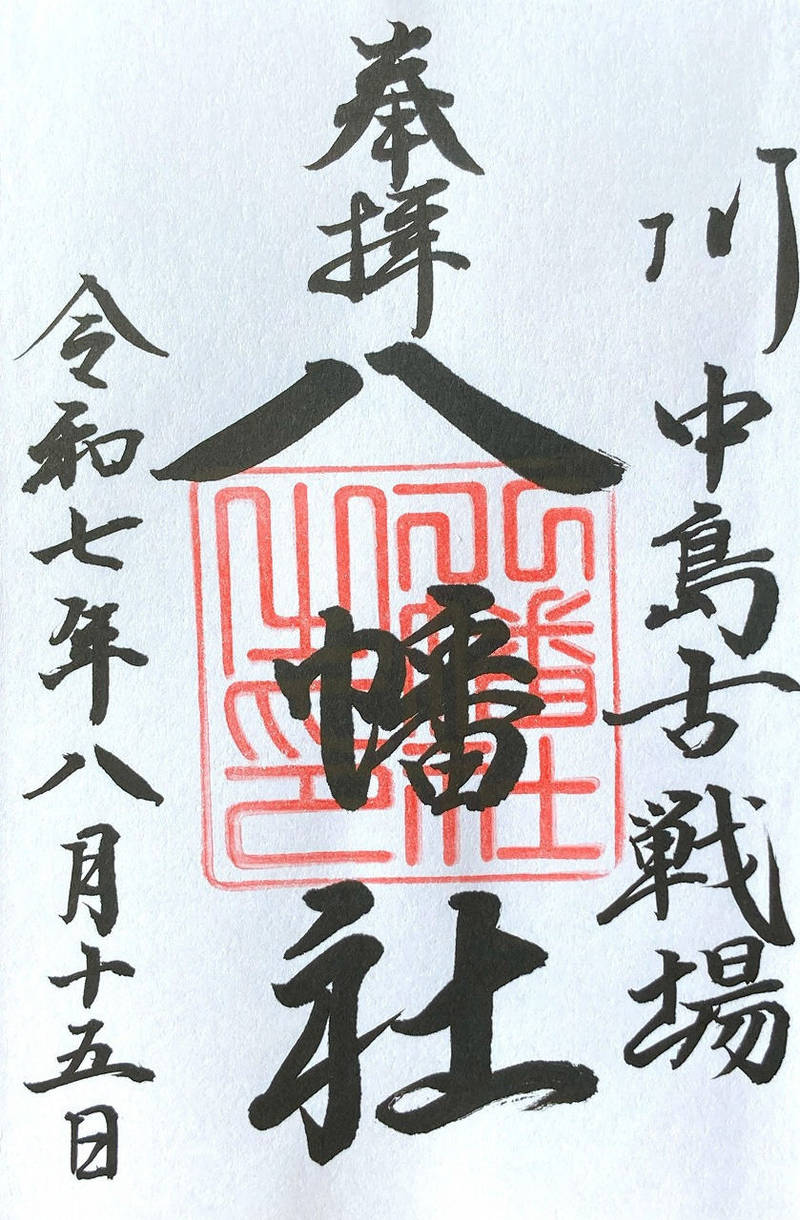 川中島古戦場
奉拝
八幡社
八幡社之印
令和七年八月十五日